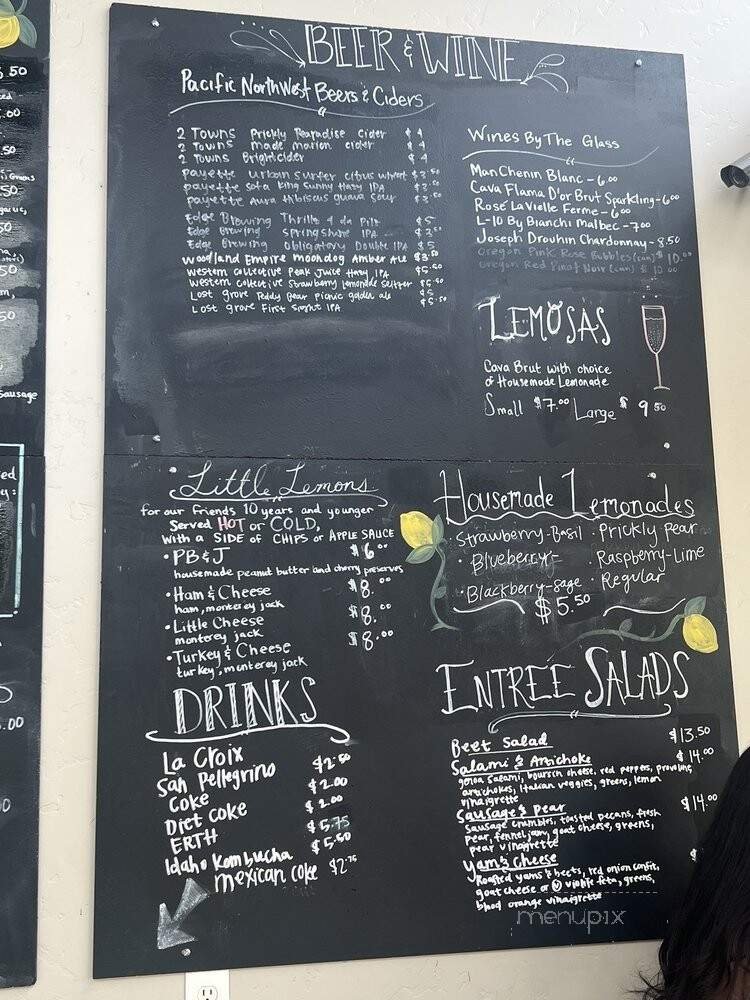 BEER & WINE
Pacific NorthWest Beers & Ciders
2 Towns Prickly Pearadise cider $4
2 Towns made marion cider $4
2 Towns Brightcider $4
payette urban surfer citus wheat $3.50
payette sofa king sunny Hazy IPA $3.50
payette aura Hibiscus guava sour $3.50
Edge Brewing Thrilla 4 da Pils $5
Edge Brewing Springshine IPA
Edge Brewing obligatory Double IPA $5
Woodland Empire moondog Amber Ale $3.50
western collective Peak Juice Hazy IPA $5.50
western collective Strawberry lemonade seltzer $5.50
Lost grove Teddy Bear picnic golden ale $5
Lost grove First Sight IPA $5.50
Wines By The Glass
Man Chenin Blanc - 6.00
Cava Flama D'or Brut Sparkling - 6.00
Rosé La Vielle Ferme - 6.00
L-10 By Bianchi Malbec - 7.00
Joseph Drouhin Chardonnay - 8.50
oregon Pink Rosé Bubbles (can) $10.00
oregon Red Pinot Noir (can) $10.00
LEMOSAS
Cava Brut with choice
of Housemade Lemonade
Small $7.00 Large $9.50
Little Lemons
for our friends 10 years and younger
Served HOT or COLD,
with a SIDE of CHIPS or APPLE SAUCE
• PB & J $6.00
housemade peanut butter and cherry preserves
• Ham & Cheese $8.00
ham, monterey jack
• Little Cheese $8.00
monterey jack
• Turkey & Cheese $8.00
turkey, munterey jack
Housemade Lemonades
• Strawberry-Basil • Prickly pear
• Blueberry- • Raspberry-Lime
• Blackberry-sage • Regular
$5.50
DRINKS
La Croix
San Pellegrino $2.50
Coke $2.00
Diet coke $2.00
ERTH $5.75
Idaho Kombucha $5.50
mexican coke $2.75
ENTREE SALADS
Beet Salad $13.50
Salami & Artichoke $14.00
genoa salami, boursin cheese, red peppers, provolone,
artichokes, Italian veggies, greens, lemon
vinaigrette
Sausage & pear $14.00
Sausage crumbles, toasted pecans, fresh
pear, fennel jam, goat cheese, greens,
pear vinaigrette
yam & cheese $
Roasted yams & beets, red onion confit,
goat cheese or V violife feta, greens,
blood orange vinaigrette
menupix